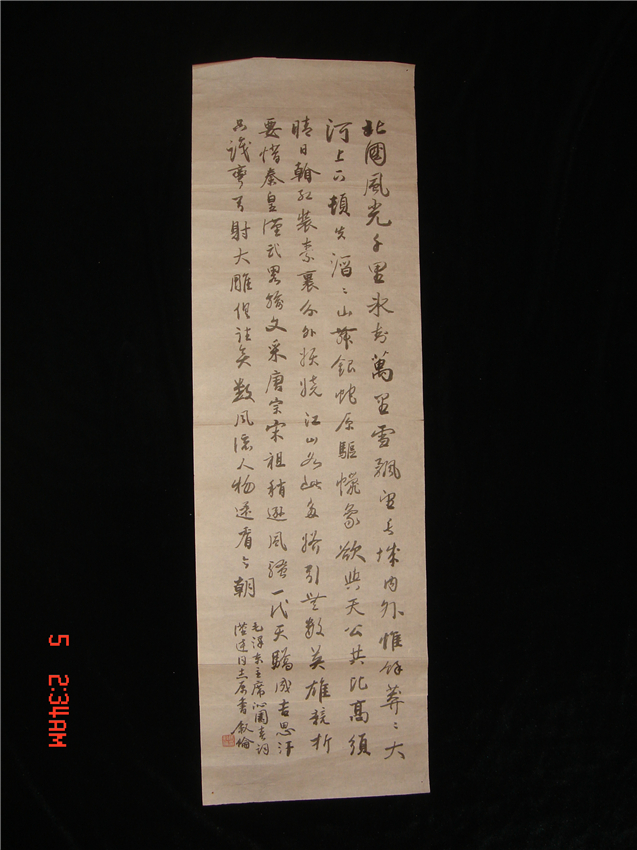 北國風光千里冰封萬里雪飄望長城內外惟餘莽〻大
河上下頓失滔〻山舞銀蛇原驅蠟象欲與天公共比高須
晴日看紅裝素裹分外妖嬈江山如此多嬌引無數英雄競折
要惜秦皇漢武畧輸文采唐宗宋祖稍遜風騷一代天驕成吉思汗
只識彎弓射大雕俱往矣數風流人物還看今朝
毛澤東主席沁園春詞
達同志屬書 叙倫
5 2:34AM